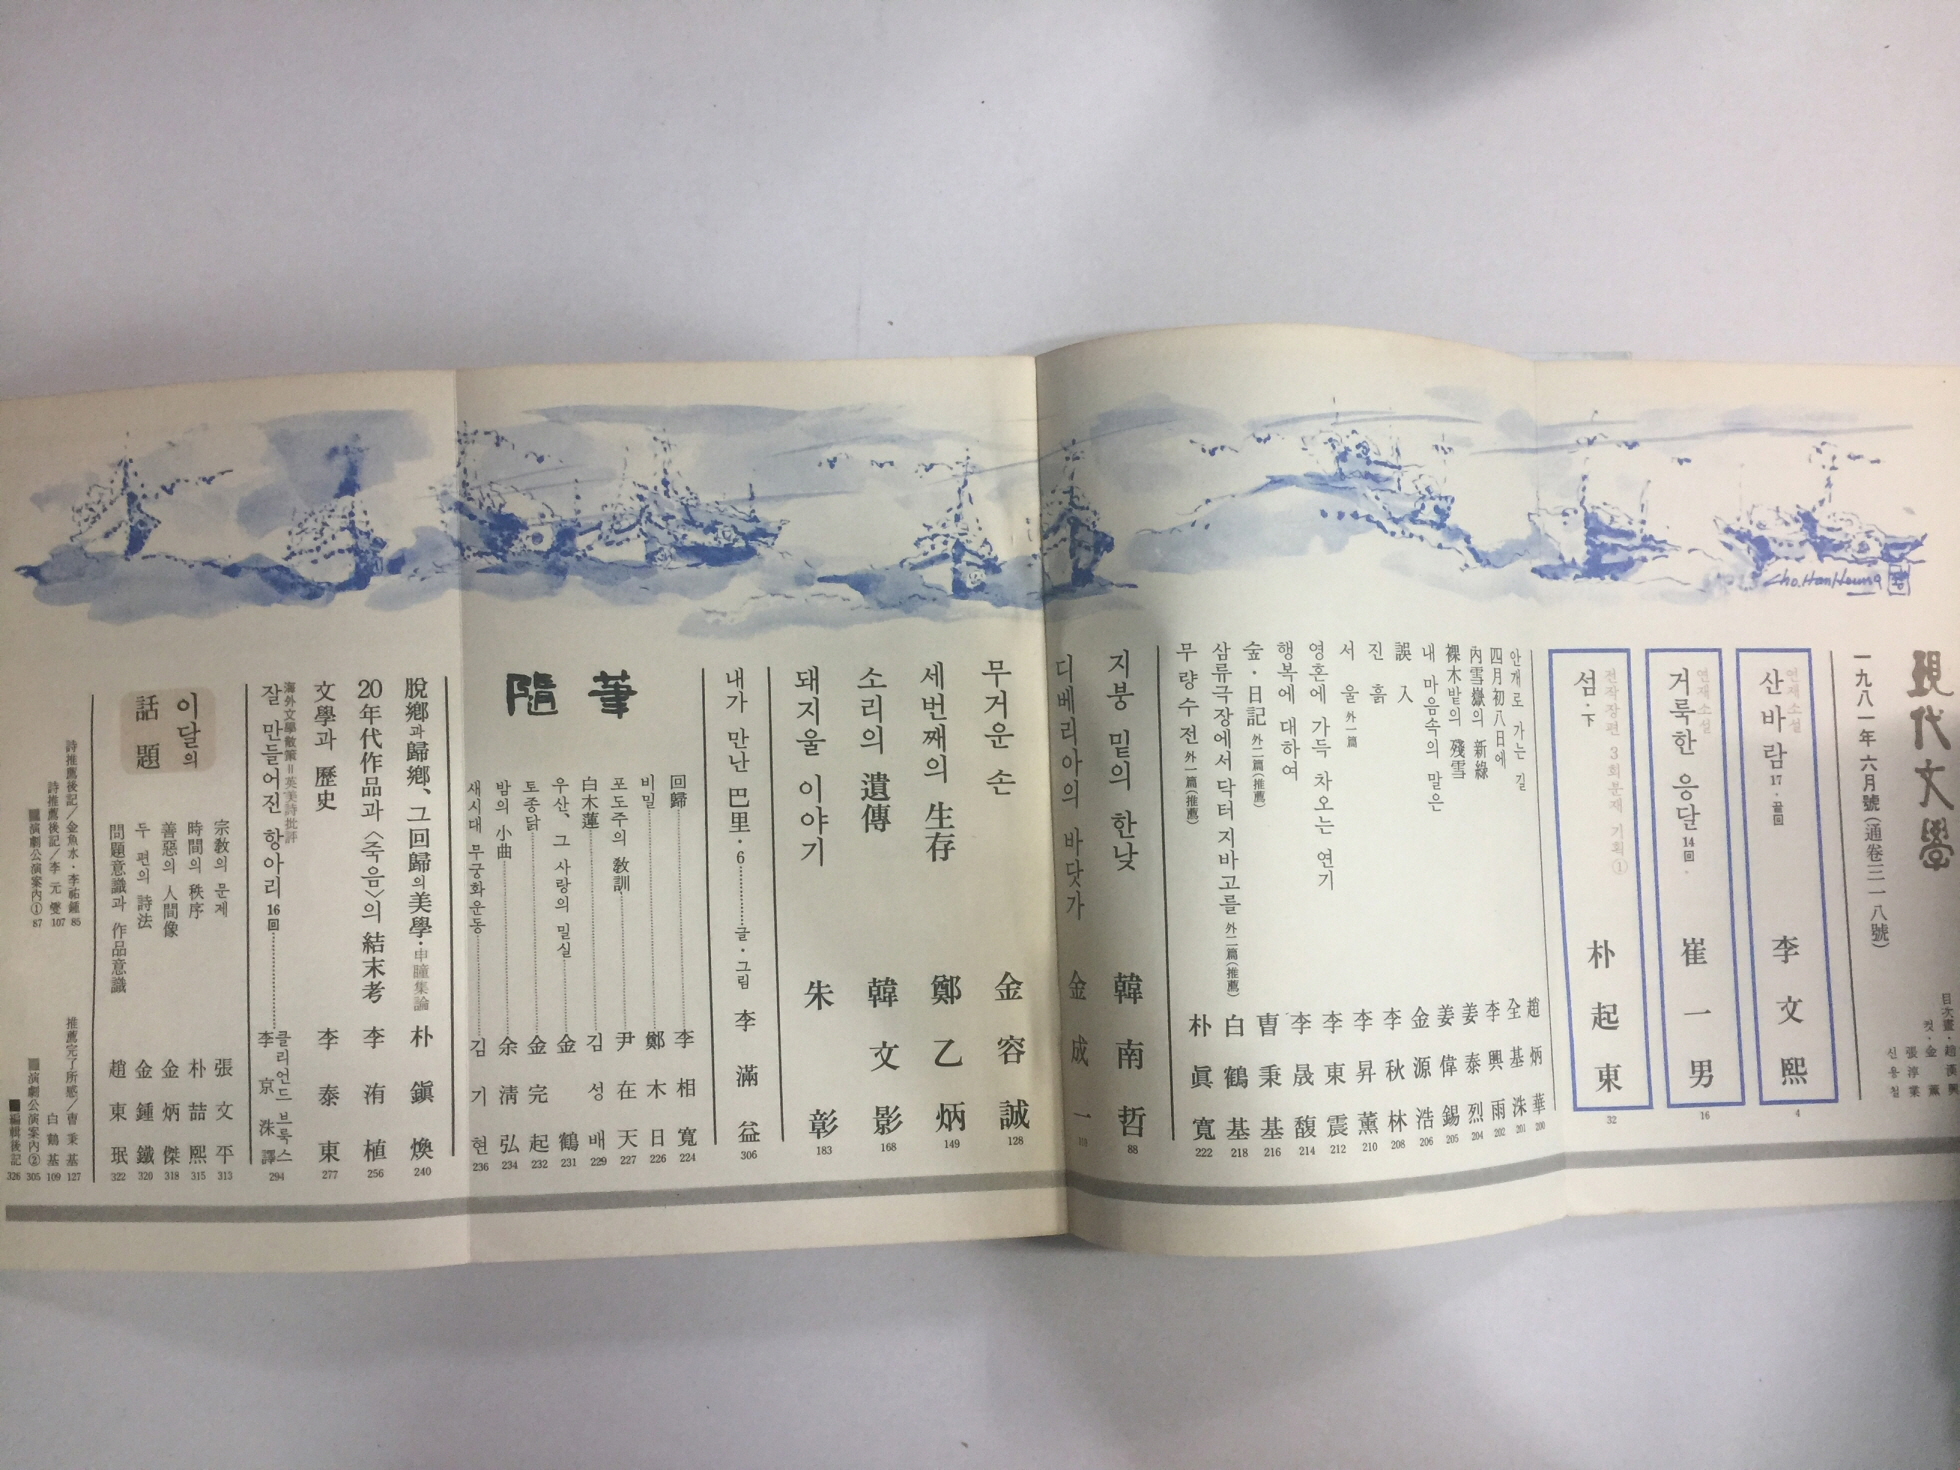 現代文學
一九八一年 六月號(通卷三一八號)
目次畫·趙漢興
컷·金薰
張淳業
신용철
연재소설
산바람 17·끝回 李文熙 4
연재소설
거룩한 응달 14回· 崔一男 16
전작장편 3회분재 기획①
섬·下 朴起東 32
안개로 가는 길 趙炳華 200
四月初八日에 全基洙 201
內雪嶽의 新綠 李興雨 202
裸木밭의 殘雪 姜泰烈 204
내 마음속의 말은 姜偉錫 205
誤入 金源浩 206
진흙 李秋林 208
서울 外一篇 李昇薰 210
영혼에 가득 차오는 연기 李東震 212
행복에 대하여 李晟馥 214
숲·日記 外二篇(推薦) 曺秉基 216
삼류극장에서 닥터 지바고를 外二篇(推薦) 白鶴基 218
무량수전 外一篇(推薦) 朴眞寬 222
지붕 밑의 한낮 韓南哲 88
디베리아의 바닷가 金成一 110
무거운 손 金容誠 128
세번째의 生存 鄭乙炳 149
소리의 遺傳 韓文影 168
돼지울 이야기 朱彰 183
내가 만난 巴里·6 글·그림 李滿益 306
隨筆
回歸 李相寬 224
비밀 鄭木日 226
포도주의 敎訓 尹在天 227
白木蓮 김성배 229
우산, 그 사랑의 밀실 金鶴 231
토종닭 金完起 232
밤의 小曲 余淸弘 234
새시대 무궁화운동 김기현 236
脫鄕과 歸鄕、그 回歸의 美學·申瞳集論 朴鎭煥 240
20年代作品과 〈죽음〉의 結末考 李洧植 256
文學과 歷史 李泰東 277
海外文學散策=英美詩批評
잘 만들어진 항아리 16回 클리언드 브룩스 李京洙譯 294
이달의 話題
宗敎의 문제 張文平 313
時間의 秩序 朴喆熙 315
善惡의 人間像 金炳傑 318
두 편의 詩法 金鍾鐵 320
問題意識과 作品意識 趙東珉 322
詩推薦後記/金魚水·李祐鍾 85
詩推薦後記/李元燮 107
■演劇公演案內① 87
推薦完了所感/曺秉基 127
白鶴基 109
■演劇公演案內② 305
■編輯後記 326
Cho.HanHeung